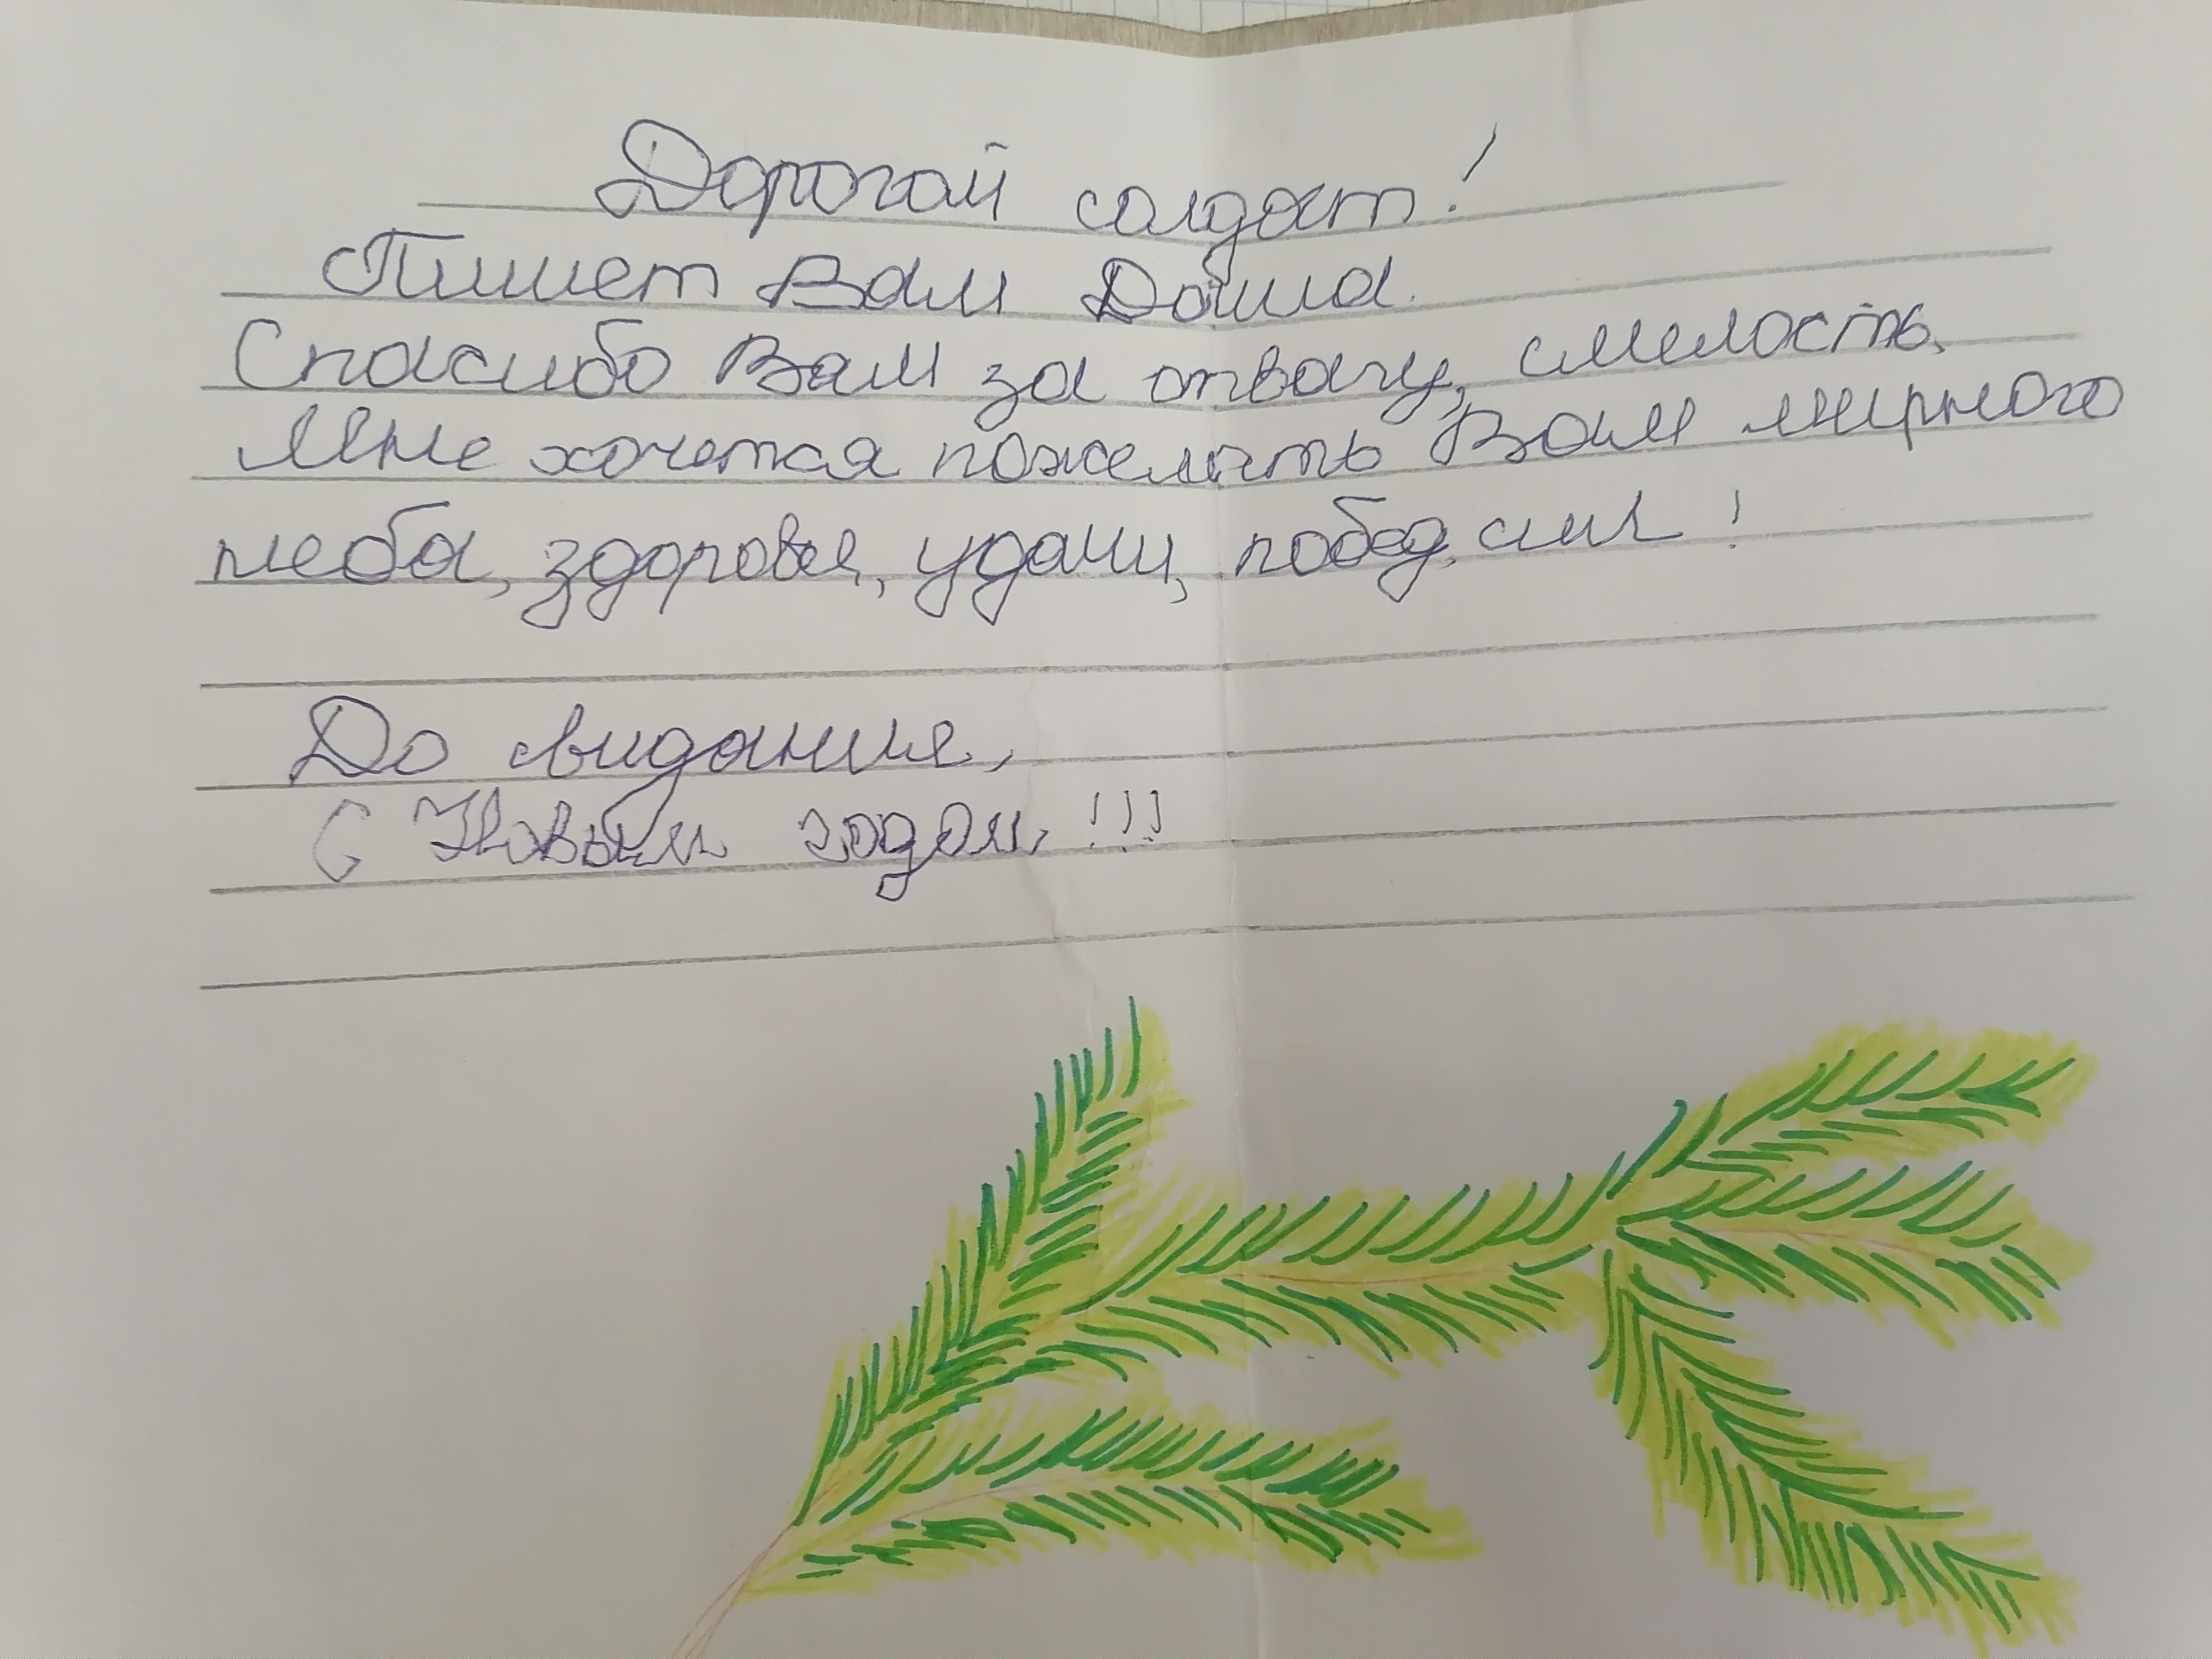 Дорогой солдат!
Пишет Вам Даша.
Спасибо Вам за отвагу, смелость.
Мне хочется пожелать Вам мирного
неба, здоровья, удачи, побед, сил!
До свидания,
С Новым годом!!!